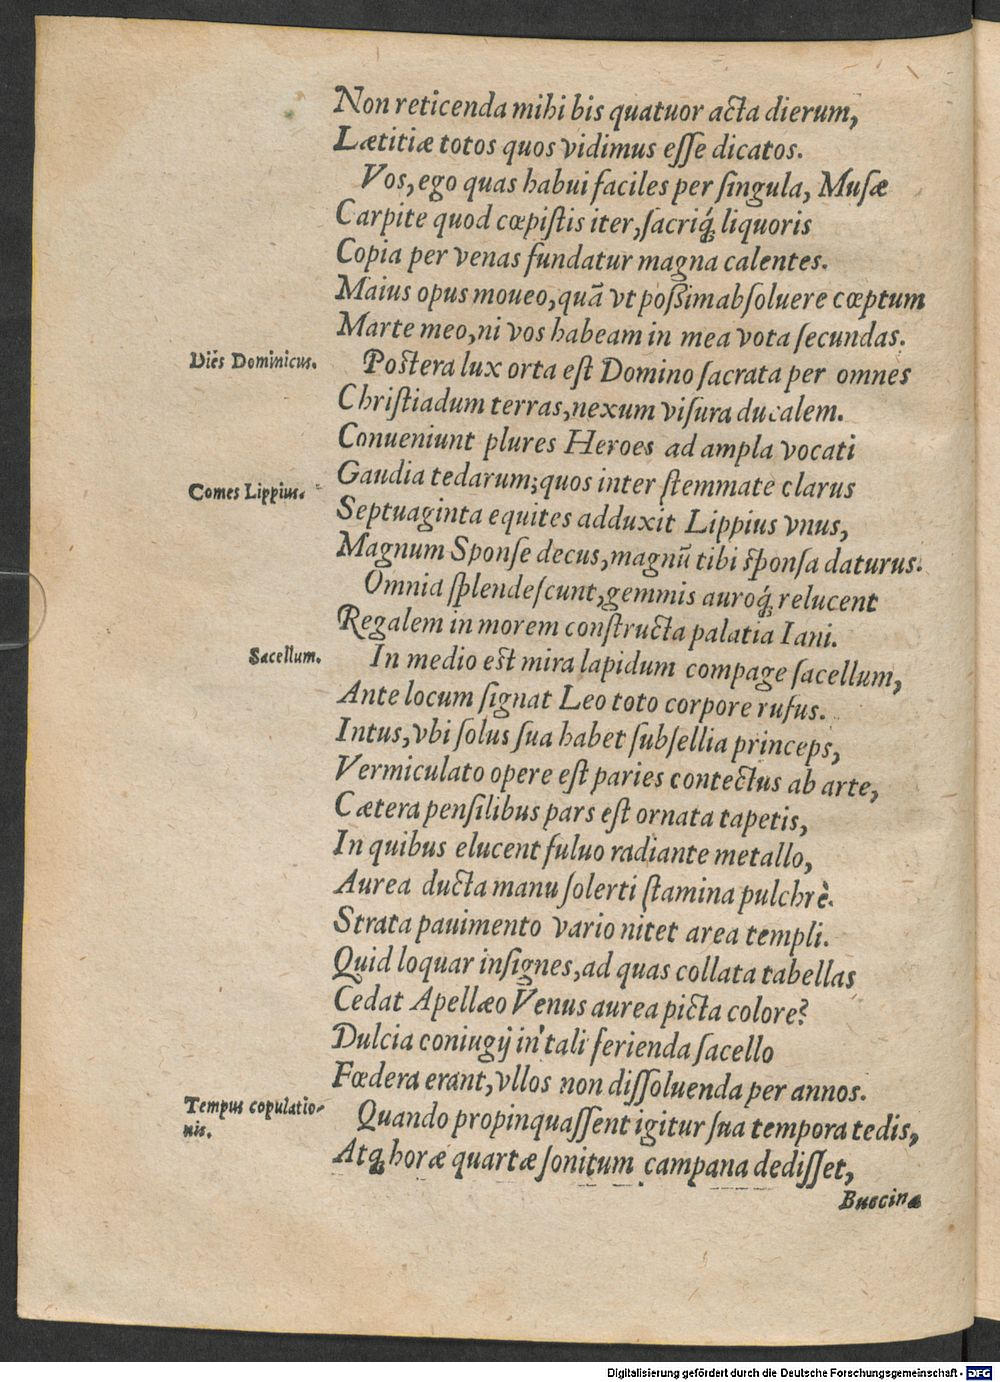 Non reticenda mihi bis quatuor acta dierum,
Lætitiæ totos quos vidimus eſſe dicatos.
Vos, ego quas habui faciles per ſingula, Muſæ
Carpite quod cœpiſtis iter, ſacriq́; liquoris
Copia per venas fundatur magna calentes.
Maius opus moueo, quã vt poßim abſoluere cœptum
Marte meo, ni vos habeam in mea vota ſecundas.
Diēs Dominicus.
Poſtera lux orta eſt Domino ſacrata per omnes
Chriſtiadum terras, nexum viſura ducalem.
Conueniunt plures Heroes ad ampla vocati
Comes Lippius.
Gaudia tedarum; quos inter ſtemmate clarus
Septuaginta equites adduxit Lippius vnus,
Magnum Sponſe decus, magnũ tibi ſponſa daturus.
Omnia ſplendeſcunt, gemmis auroq́; relucent
Regalem in morem conſtructa palatia Iani.
Sacellum.
In medio eſt mira lapidum compage ſacellum,
Ante locum ſignat Leo toto corpore rufus.
Intus, vbi ſolus ſua habet ſubſellia princeps,
Vermiculato opere eſt paries contectus ab arte,
Cætera penſilibus pars eſt ornata tapetis,
In quibus elucent fuluo radiante metallo,
Aurea ducta manu ſolerti ſtamina pulchrè.
Strata pauimento vario nitet area templi.
Quid loquar inſignes, ad quas collata tabellas
Cedat Apellæo Venus aurea picta colore?
Dulcia coniugij in tali ferienda ſacello
Fœdera erant, vllos non diſſoluenda per annos.
Tempus copulatio-
nis.
Quando propinquaſſent igitur ſua tempora tedis,
Atq; horæ quartæ ſonitum campana dediſſet,
Buccinæ
Digitalisierung gefördert durch die Deutsche Forschungsgemeinschaft - DFG